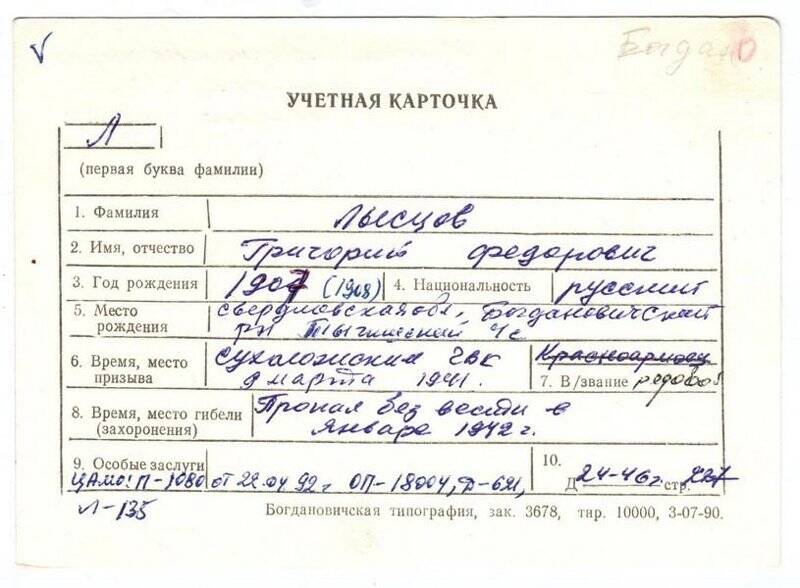 Богдано
УЧЕТНАЯ КАРТОЧКА
Л
(первая буква фамилии)
1. Фамилия Лысцов
2. Имя, отчество Григорий Федорович
3. Год рождения 1907 (1908) 4. Национальность русский
5. Место рождения Свердловская обл, Богдановичский
рн с/с
6. Время, место призыва Сухоложским ГВК Красноармеец
9 марта 1941. 7. В/звание редовой
8. Время, место гибели (захоронения) Пропал без вести в
Январе 1942 г.
9. Особые заслуги 10.
ЦАМО: П-1080 от 22.04 92 г ОП-18004, Д-621, Д 24-46г. стр. 227
Л-135
Богдановичская типография, зак. 3678, тир. 10000, 3-07-90.